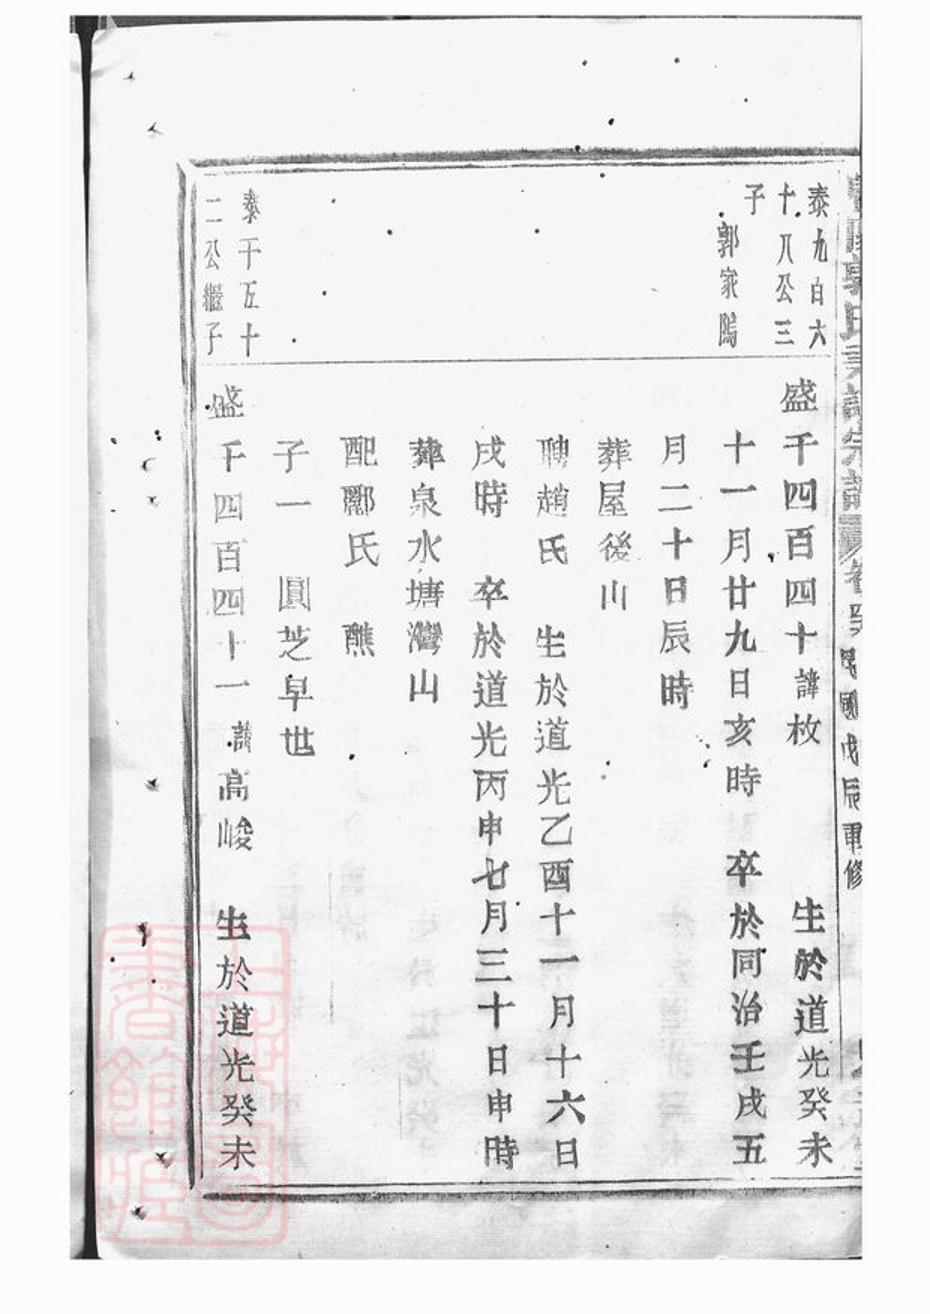 民國戊辰重修
泰九百六
十八公三
子
郭家隖
盛千四百四十諱枚 生於道光癸未
十一月廿九日亥時 卒於同治壬戌五
月二十日辰時
葬屋後山
聘趙氏 生於道光乙酉十一月十六日
戌時 卒於道光丙申七月三十日申時
葬泉水塘灣山
配酈氏 醮
子一 圓芝早世
泰千五十
二公繼子
盛千四百四十一諱高峻 生於道光癸未